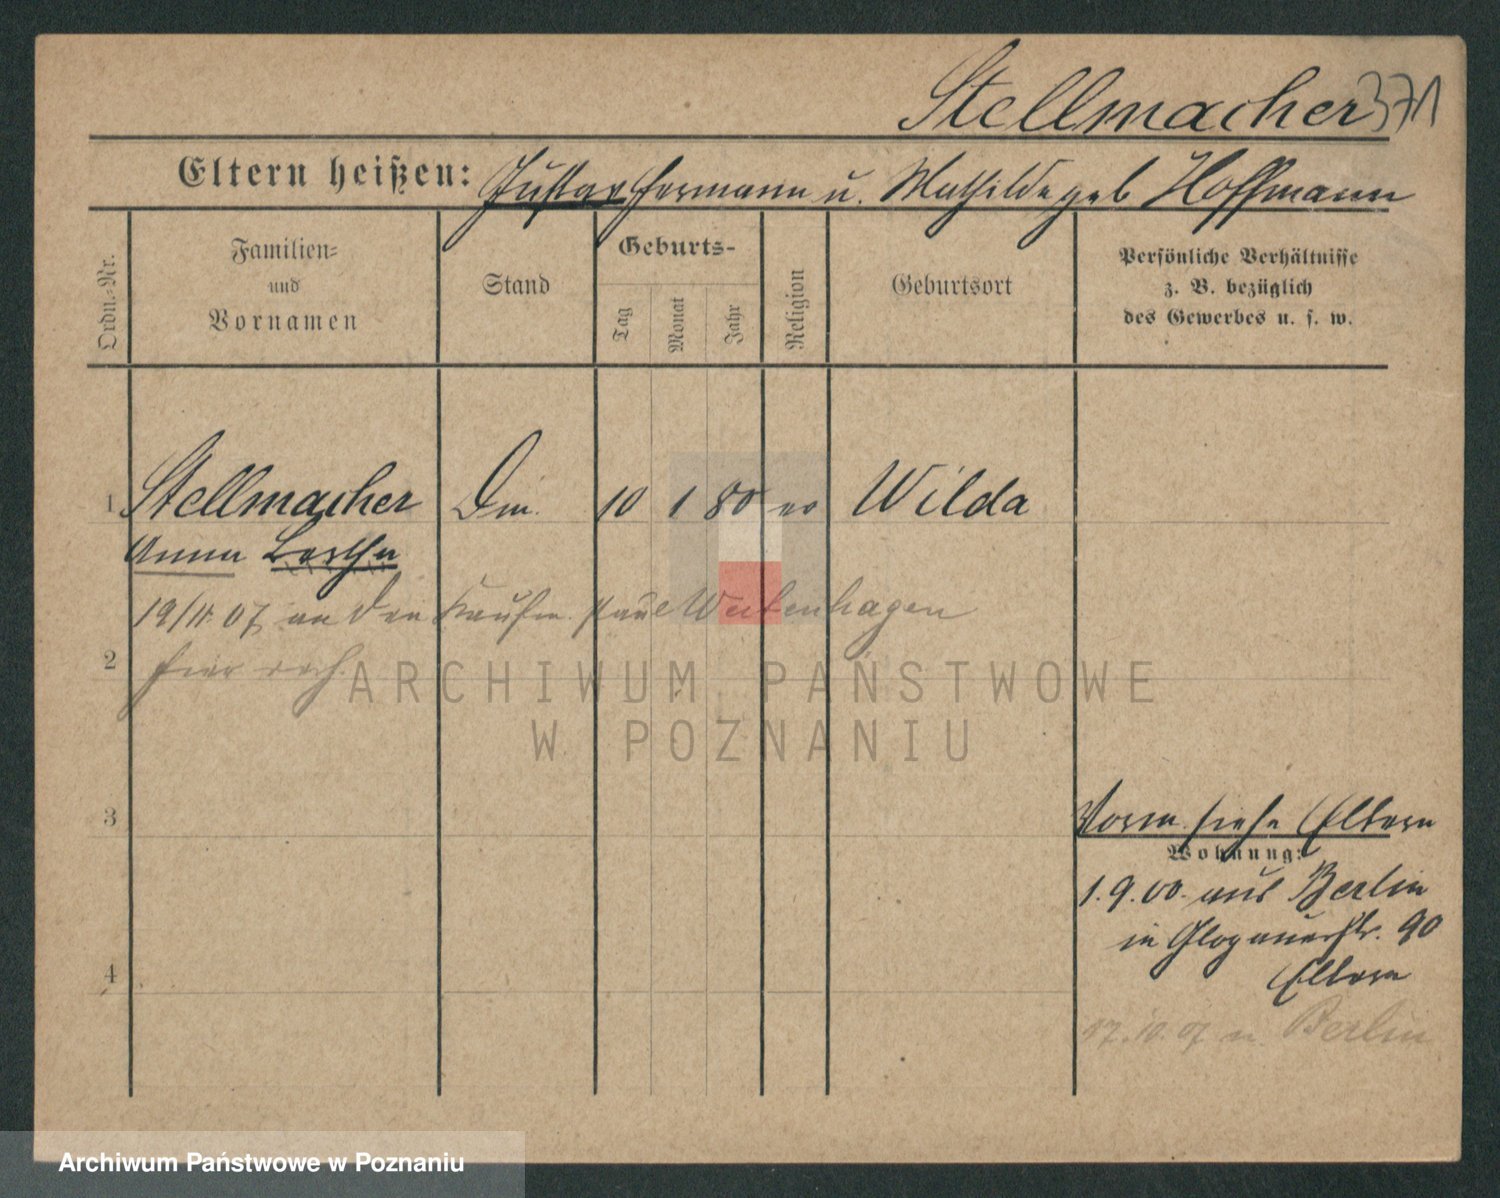 Stellmacher 371
Eltern heißen: Gustav Hermann u. Mathilde geb Hoffmann
Ordn.-Nr.
Familien-
und
Vornamen
Stand
Geburts-
Tag
Monat
Jahr
Religion
Geburtsort
Persönliche Verhältnisse
z. B. bezüglich
des Gewerbes u. s. w.
1 Stellmacher 10 1 80 ev Wilda
Anna Bertha
07 an den Kaufm. Paul Weitenhagen
2 hier
ARCHIWUM PAŃSTWOWE
W POZNANIU
3
Vorm. siehe Eltern
Wohnung:
1.9.00. aus Berlin
in Glogauerstr. 90
4
Eltern
17.10.07 n. Berlin
Archiwum Państwowe w Poznaniu